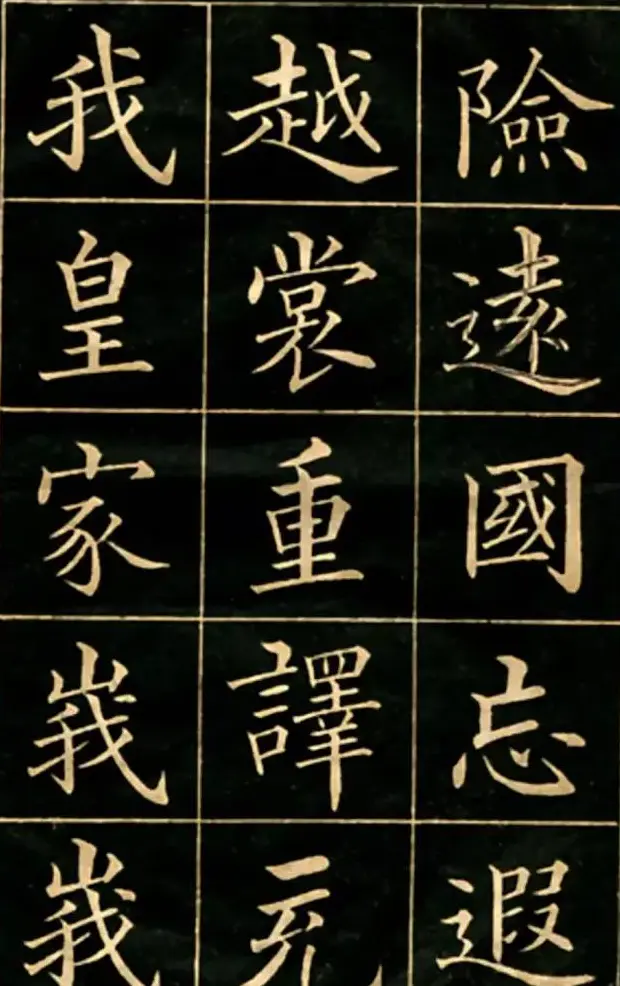 險遠國忘遐
越裳重譯充
我皇家峩峩